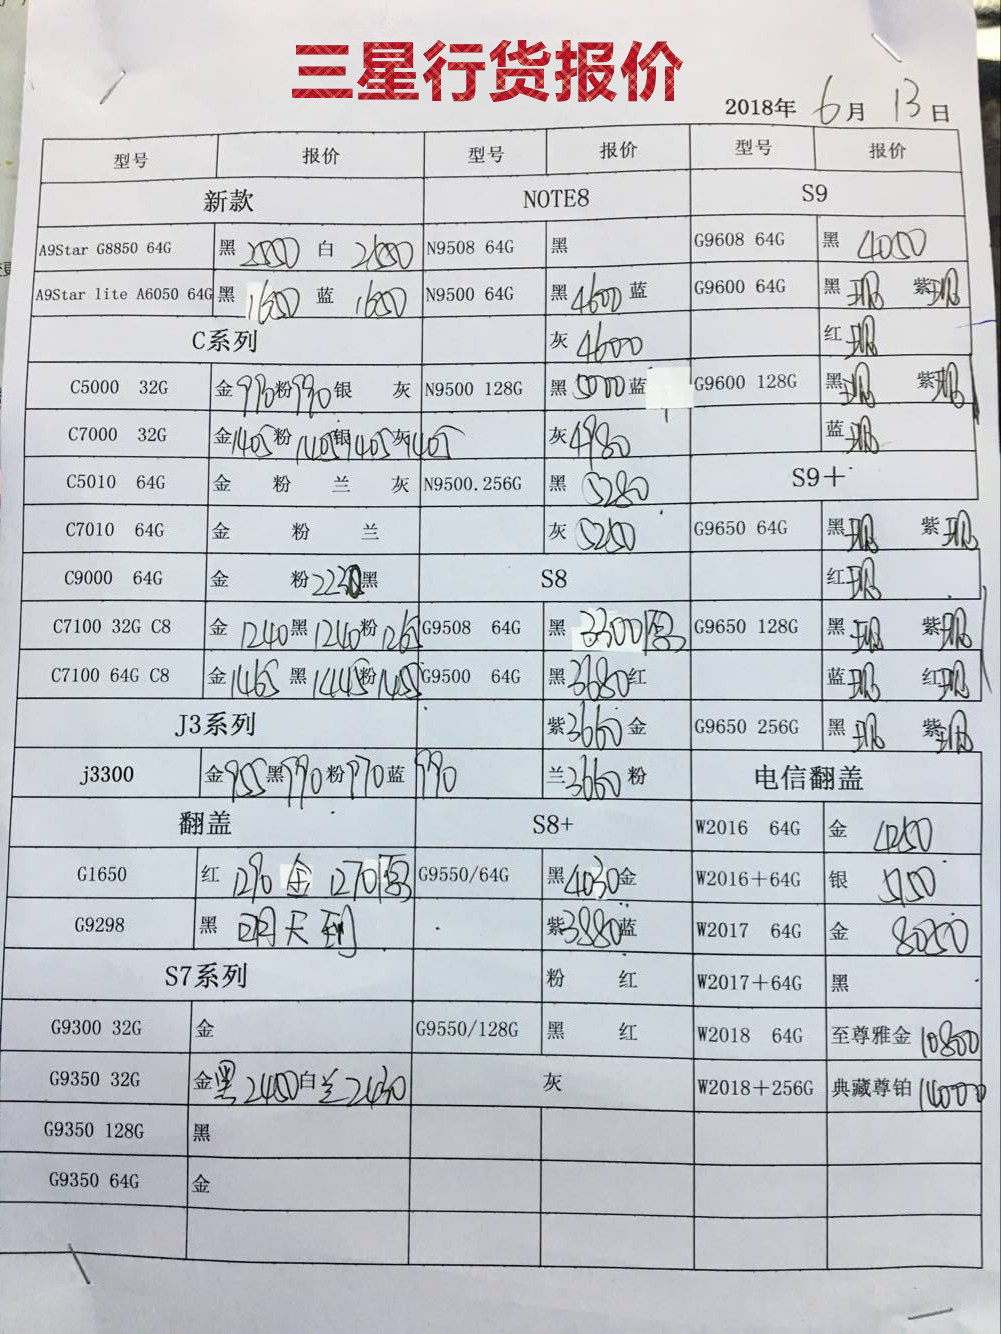 三星行货报价
2018年 6月 13日
型号 报价 型号 报价 型号 报价
新款 NOTE8 S9
A9Star G8850 64G 黑 白 N9508 64G 黑 G9608 64G 黑 4050
A9Star lite A6050 64G 黑 1650 蓝 1650 N9500 64G 黑 4600 蓝 G9600 64G 黑 现 紫 现
C系列 灰 4600 红 现
C5000 32G 金 990 粉 990 银 灰 N9500 128G 黑 5000 蓝 G9600 128G 黑 现 紫 现
C7000 32G 金 1405 粉 1405 银 1405 灰 1405 灰 4980 蓝 现
C5010 64G 金 粉 兰 灰 N9500.256G 黑 5280 S9+
C7010 64G 金 粉 兰 灰 5250 G9650 64G 黑 现 紫 现
C9000 64G 金 粉 2230 黑 S8 红 现
C7100 32G C8 金 1240 黑 1240 粉 G9508 64G 黑 3300 G9650 128G 黑 现 紫 现
C7100 64G C8 金 1465 黑 1445 粉 1455 G9500 64G 黑 3680 红 蓝 现 红 现
J3系列 紫 3660 金 G9650 256G 黑 现 紫 现
j3300 金 955 黑 990 粉 970 蓝 990 兰 3660 粉 电信翻盖
翻盖 S8+ W2016 64G 金 4250
G1650 红 1290 金 1270 G9550/64G 黑 4030 金 W2016+64G 银 5150
G9298 黑 明天到 紫 3880 蓝 W2017 64G 金 8050
S7系列 粉 红 W2017+64G 黑
G9300 32G 金 G9550/128G 黑 红 W2018 64G 至尊雅金 10800
G9350 32G 金黑 2400 白兰 2430 灰 W2018+256G 典藏尊铂 14000
G9350 128G 黑
G9350 64G 金